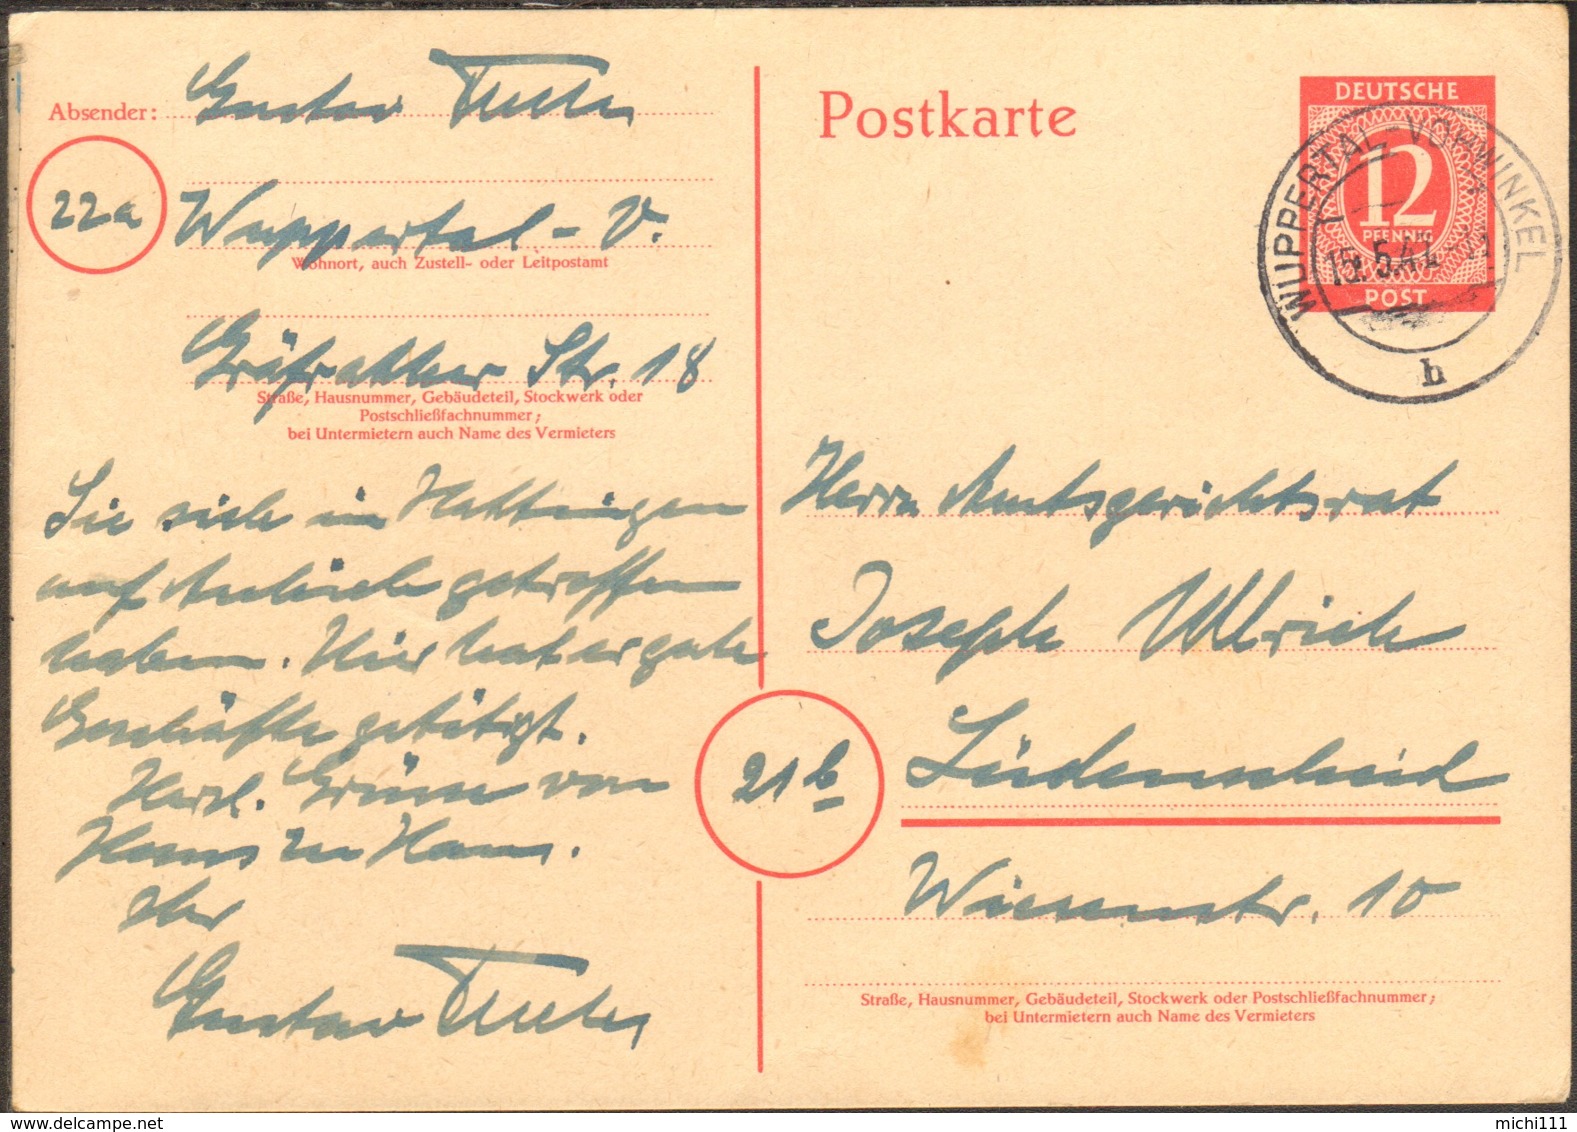 Absender: Gustav
22a
Wuppertal - V.
Wohnort, auch Zustell- oder Leitpostamt
Gräfrather Str. 18
Straße, Hausnummer, Gebäudeteil, Stockwerk oder
Postschließfachnummer;
bei Untermietern auch Name des Vermieters
Sie sich in Hattingen
auf getroffen
haben. Hier hat er gute
Geschäfte getätigt.
Herzl. Grüsse von
Haus zu Haus.
Ihr
Gustav
Postkarte
DEUTSCHE
12
PFENNIG
POST
WUPPERTAL-VOHWINKEL
15.5.47
h
Herrn Amtsgerichtsrat
Joseph Ullrich
21b Lüdenscheid
Wiesenstr. 10
Straße, Hausnummer, Gebäudeteil, Stockwerk oder Postschließfachnummer;
bei Untermietern auch Name des Vermieters
delcampe.net
michi111